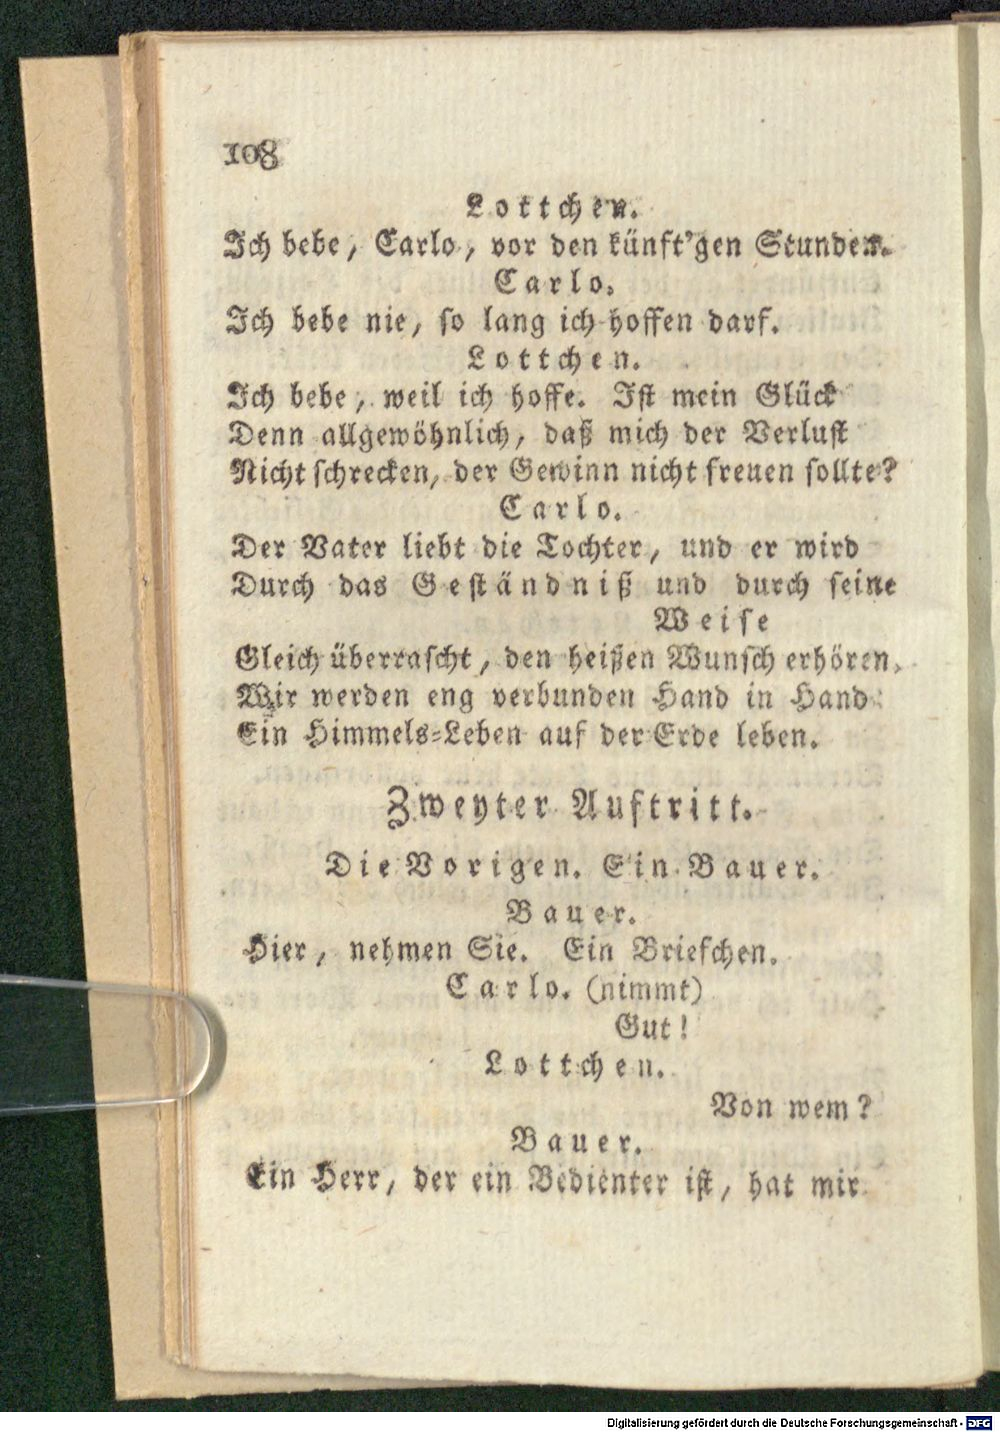 108
Lottchen.
Ich bebe, Carlo, vor den künft'gen Stunden.
Carlo.
Ich bebe nie, so lang ich hoffen darf.
Lottchen.
Ich bebe, weil ich hoffe. Ist mein Glück
Denn allgewöhnlich, daß mich der Verlust
Nicht schrecken, der Gewinn nicht freuen sollte?
Carlo.
Der Vater liebt die Tochter, und er wird
Durch das Geständniß und durch seine
Weise
Gleich überrascht, den heißen Wunsch erhören,
Wir werden eng verbunden Hand in Hand
Ein Himmels-Leben auf der Erde leben.
Zweyter Auftritt.
Die Vorigen. Ein Bauer.
Bauer.
Hier, nehmen Sie. Ein Briefchen.
Carlo. (nimmt)
Gut!
Lottchen.
Von wem?
Bauer.
Ein Herr, der ein Bedienter ist, hat mir
Digitalisierung gefördert durch die Deutsche Forschungsgemeinschaft - DFG